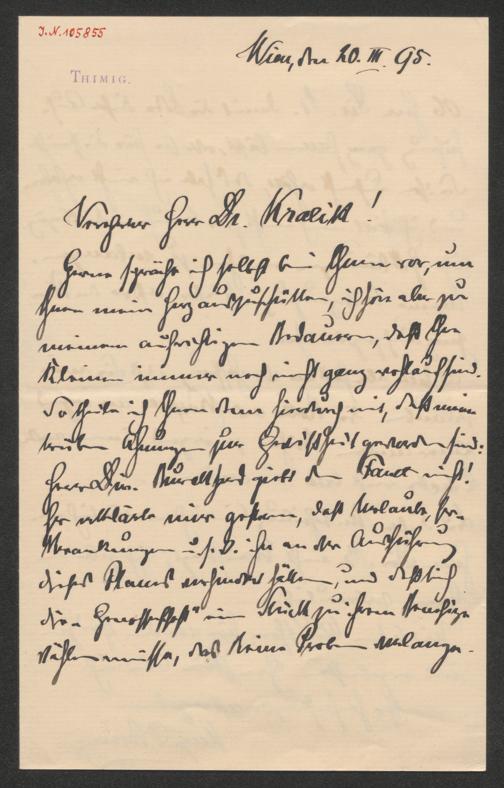 J.N. 105855
Wien, den 20. III. 95.
THIMIG.
Verehrter Herr Dr. Kralik!
Gerne spräche ich selbst bei Ihnen vor, um
Ihnen mein Herz auszuschütten, ich höre aber zu
meinem aufrichtigen Bedauern, daß Ihre
Kleinen immer noch nicht ganz wohlauf sind.
So theile ich Ihnen denn hierdurch mit, daß meine
trüben Ahnungen zur Gewißheit geworden sind:
Herr Dir. Burckhard giebt den Faust nicht!
Er erklärte mir gestern, daß Urlaube, Er-
krankungen u.s.w. ihn an der Ausführung
dieses Planes verhindert hätten, und daß sich
die „Genossenschaft" ein Stück zu ihrem Benefize
wählen müsse, das keine Proben verlange.